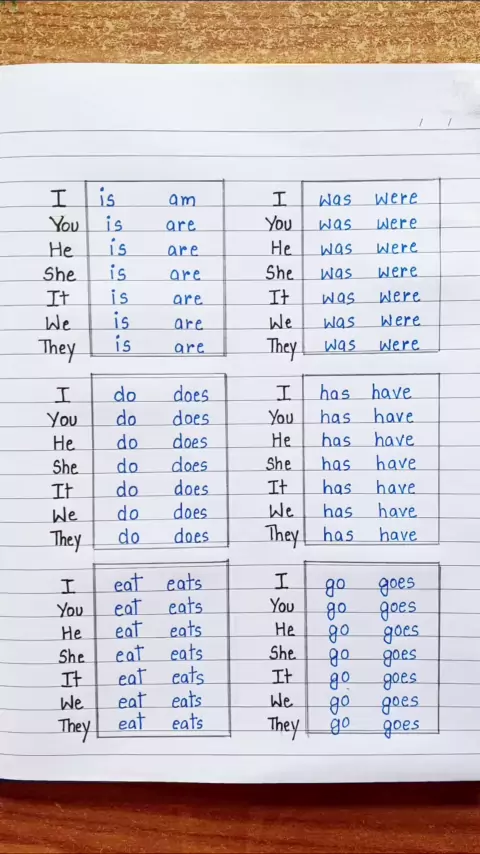 I is am
You is are
He is are
She is are
It is are
We is are
They is are
I was were
You was were
He was were
She was were
It was were
We was were
They was were
I do does
You do does
He do does
She do does
It do does
We do does
They do does
I has have
You has have
He has have
She has have
It has have
We has have
They has have
I eat eats
You eat eats
He eat eats
She eat eats
It eat eats
We eat eats
They eat eats
I go goes
You go goes
He go goes
She go goes
It go goes
We go goes
They go goes